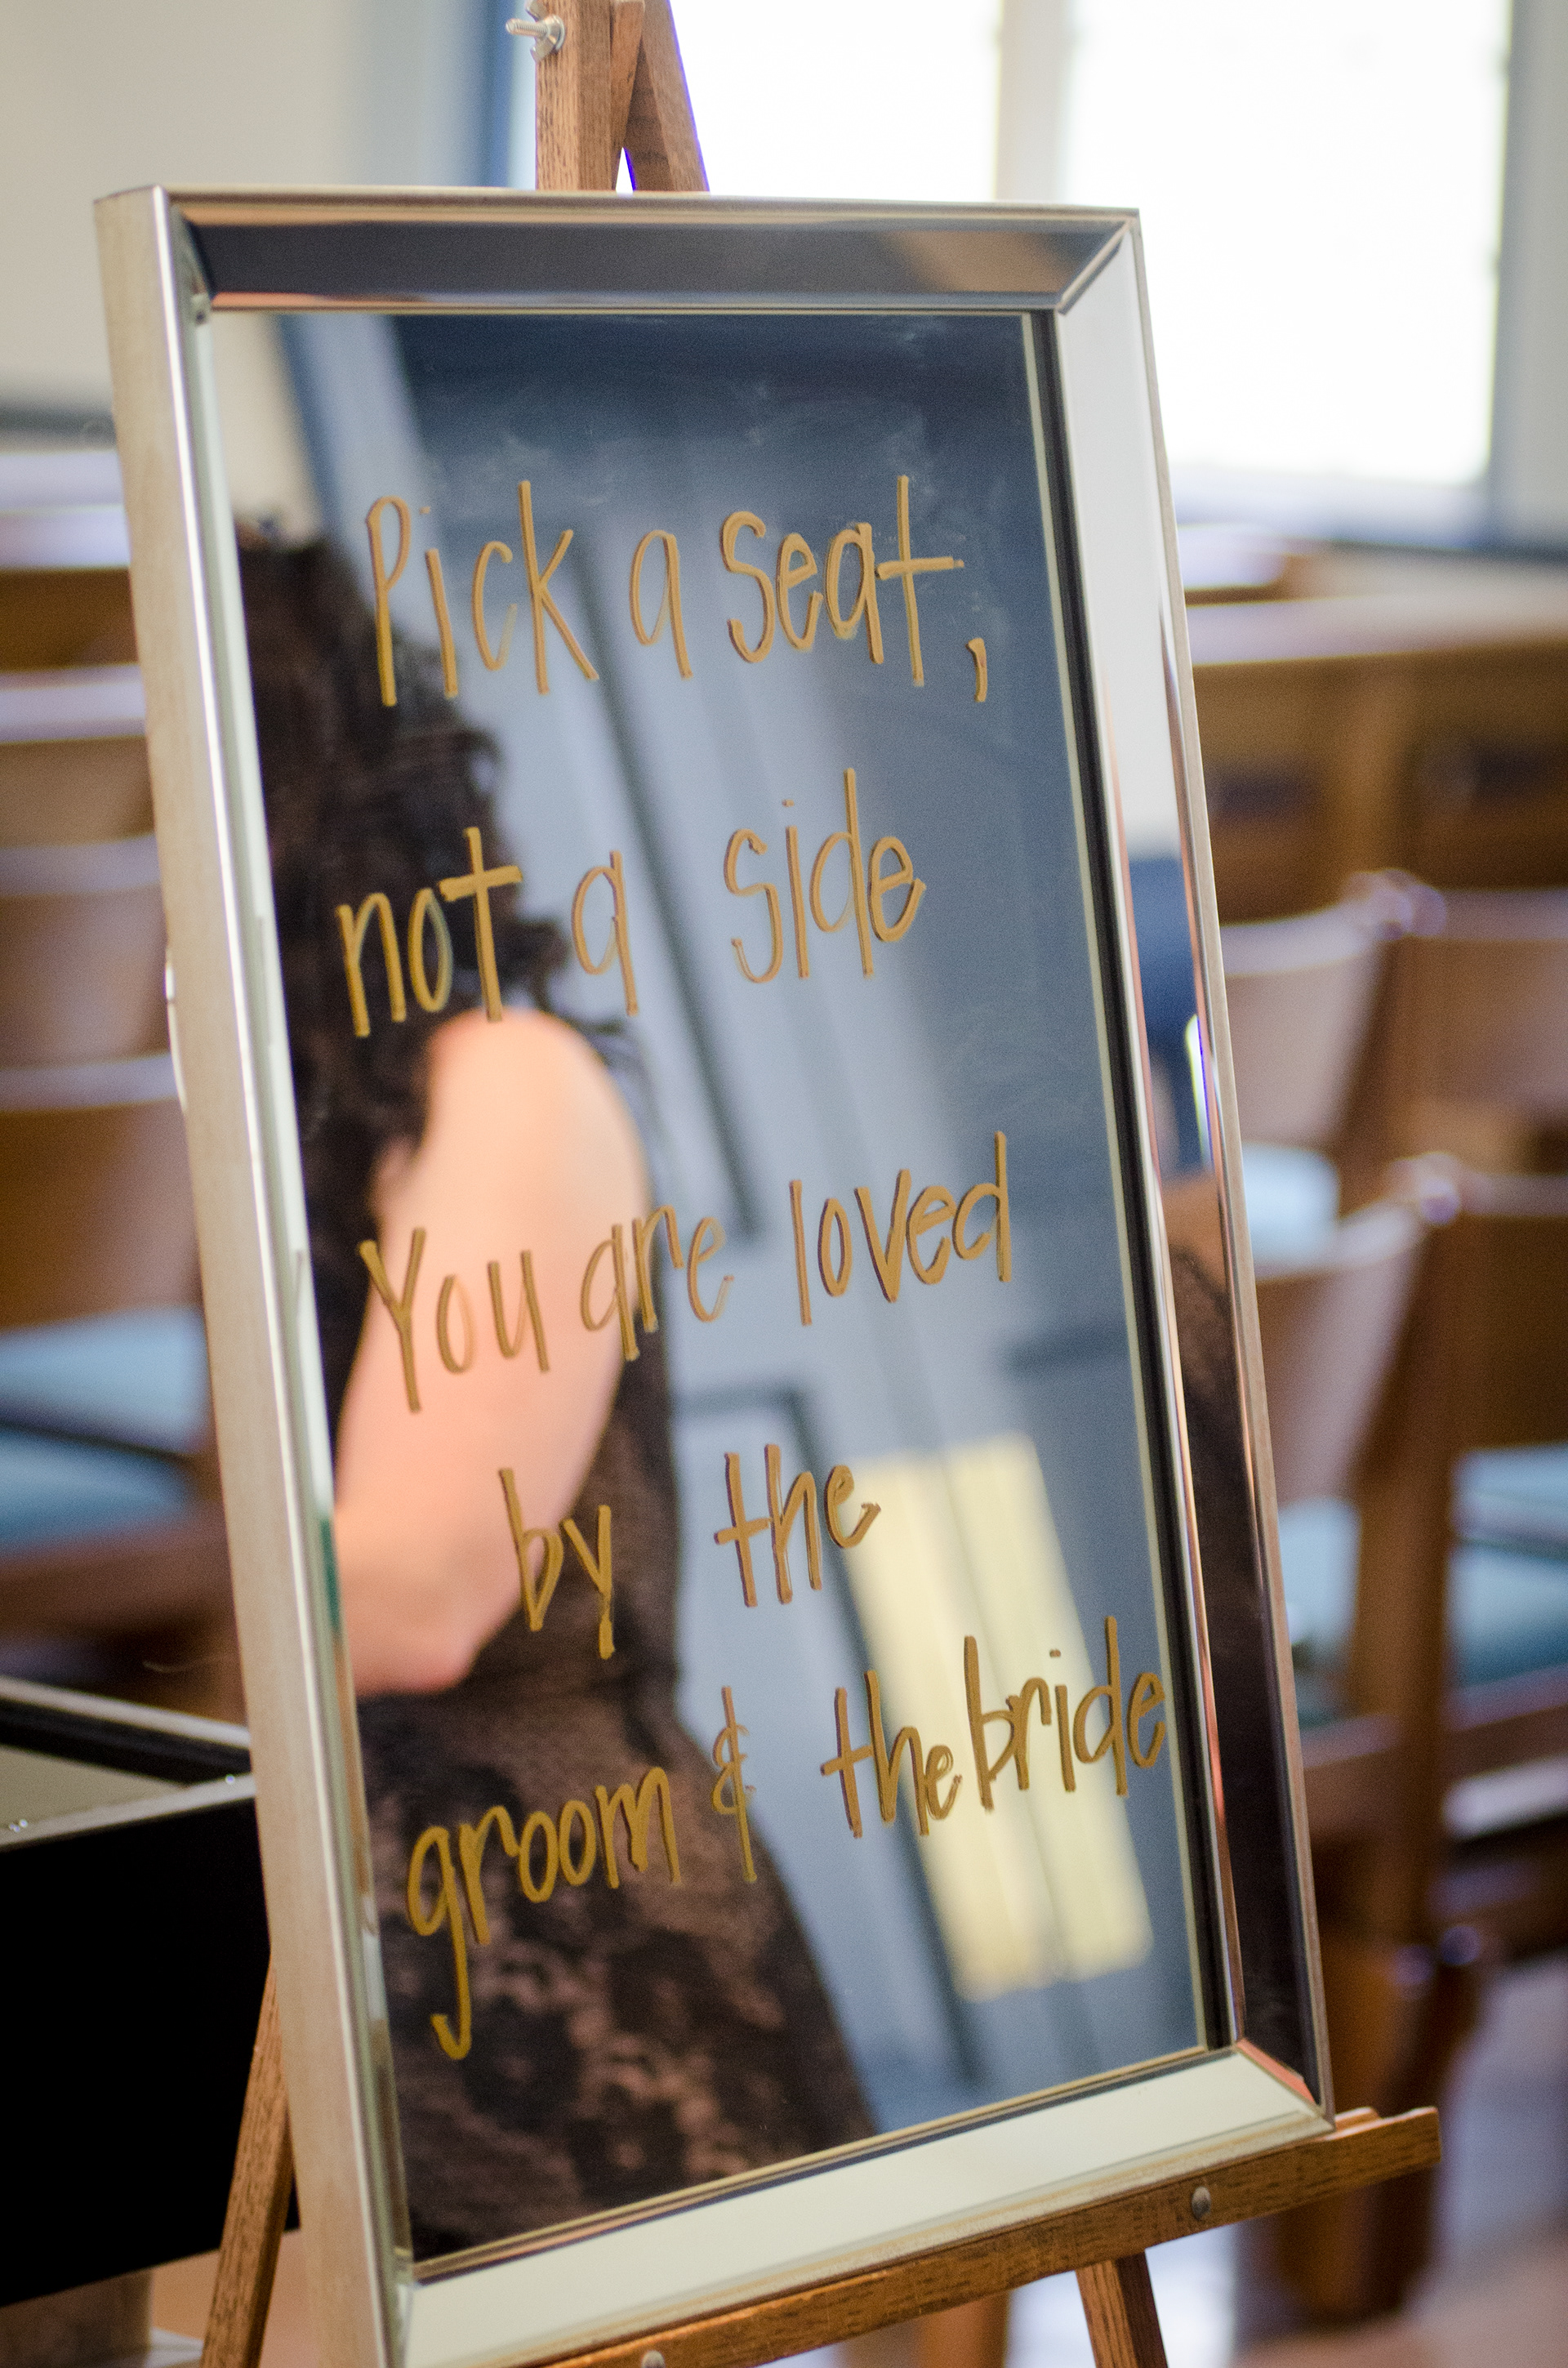 Pick a seat,
not a side
You are loved
by the
groom & the bride